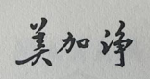 美加净